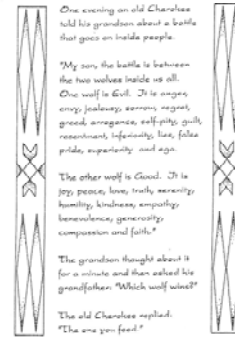 One evening an old Cherokee
told his grandson about a battle
that goes on inside people.
"My son, the battle is between
the two wolves inside us all.
One wolf is Evil. It is anger,
envy, jealousy, sorrow, regret,
greed, arrogance, self-pity, guilt,
resentment, inferiority, lies, false
pride, superiority and ego.
The other wolf is Good. It is
joy, peace, love, truth, serenity,
humility, kindness, empathy,
benevolence, generosity,
compassion and faith."
The grandson thought about it
for a minute and then asked his
grandfather: "Which wolf wins?"
The old Cherokee replied:
"The one you feed."